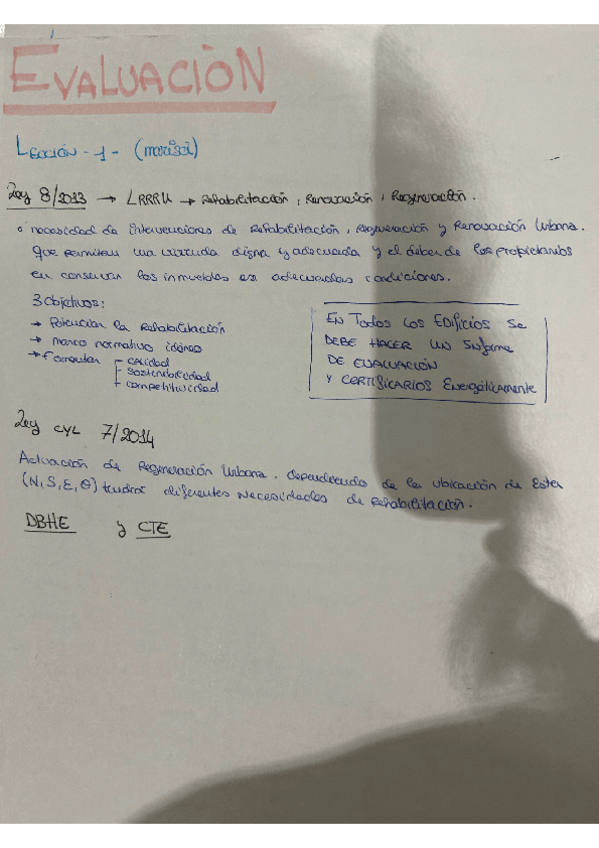 EVALUACIÓN
LECCIÓN - 1 - (marisol)
Ley 8/2013 → LRRRU → Rehabilitación, Renovación, Regeneración.
necesidad de intervenciones de Rehabilitación, Regeneración y Renovación Urbana.
que permiten una vivienda digna y adecuada y el deber de los propietarios
en conservar los inmuebles en adecuadas condiciones.
3 objetivos:
→ Potenciar la Rehabilitación
→ marco normativo idóneo
→ Fomentar
calidad
sostenibilidad
competitividad
EN TODOS LOS EDIFICIOS SE
DEBE HACER UN INFORME
DE EVALUACIÓN
Y CERTIFICARLOS ENERGÉTICAMENTE
Ley CYL 7/2014
Actuación de Regeneración Urbana. dependiendo de la ubicación de Esten
(N, S, E, O) tendrá diferentes necesidades de Rehabilitación.
DBHE y CTE